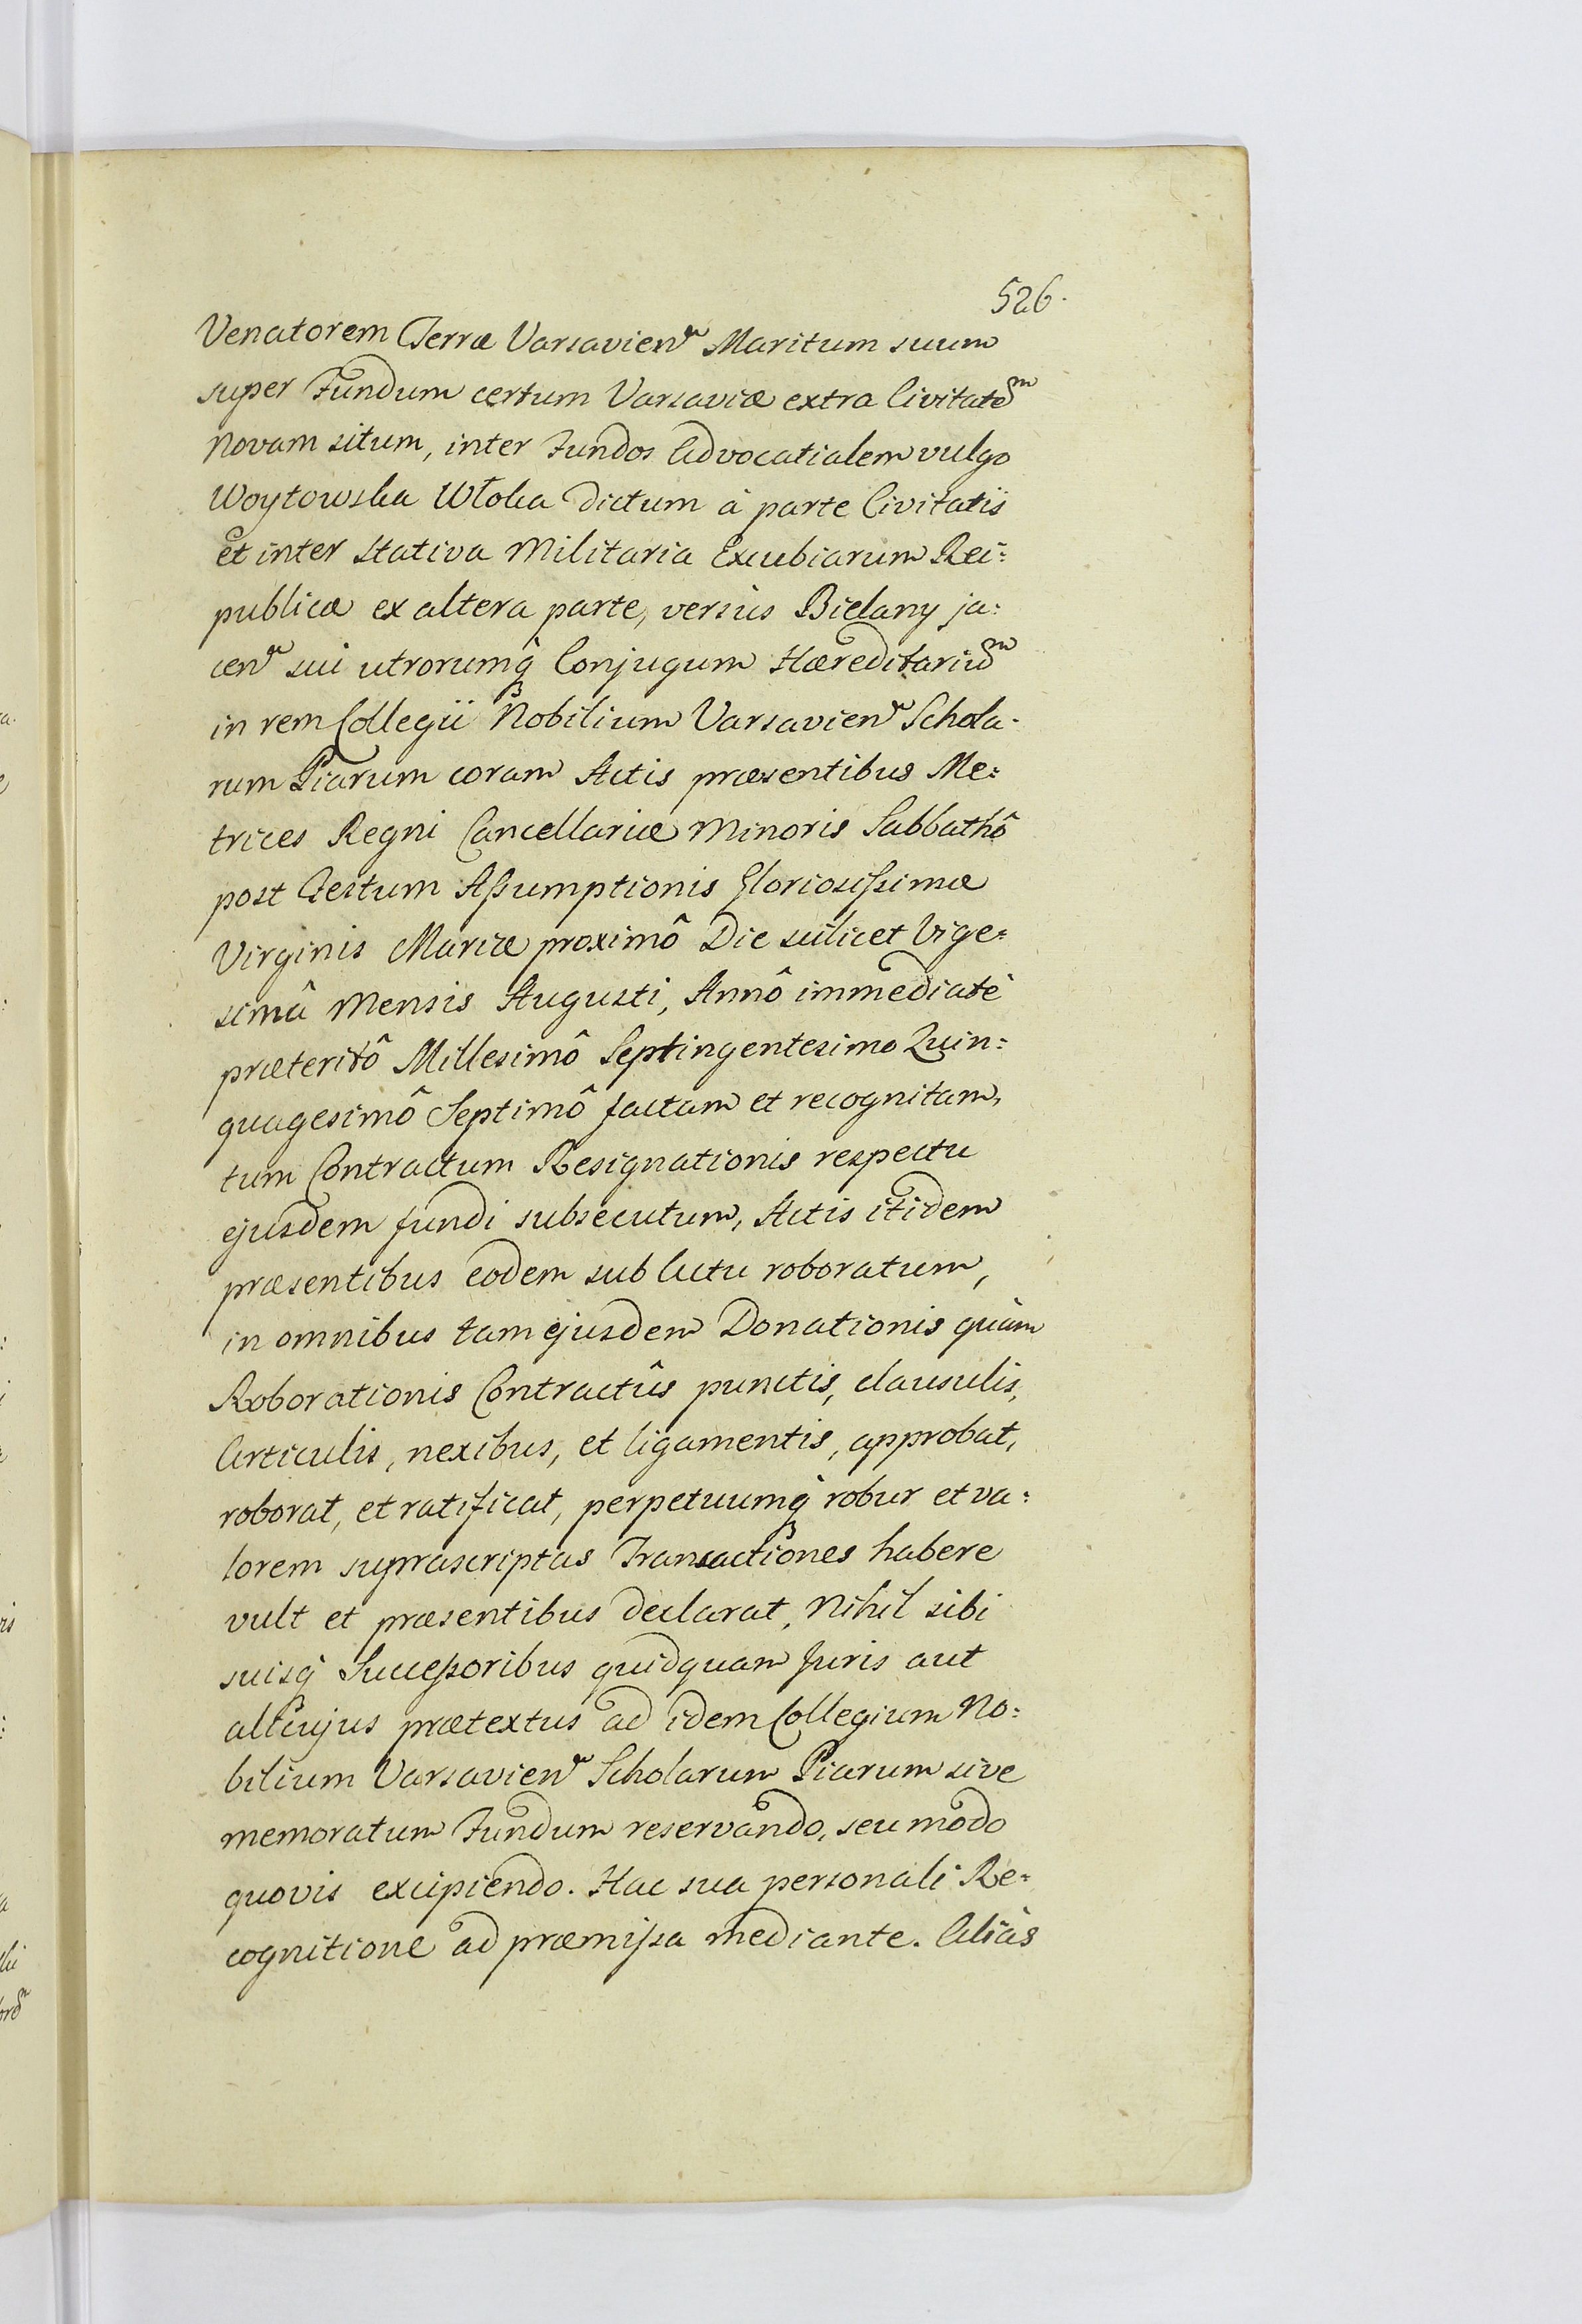 526.
Venatorem Terræ Varsavien. Maritum suum
super Fundum certum Varsaviæ extra Civitatem
Novam situm, inter Fundos Advocatialem vulgo
Woytowska Włoka dictum à parte Civitatis
et inter Stativa Militaria Excubiarum Rei:
publicæ ex altera parte, versus Bielany ja:
cen. sui utrorumq Conjugum Hæreditarium
in rem Collegii Nobilium Varsavien. Schola:
rum Piarum coram Actis præsentibus Me:
trices Regni Cancellariæ Minoris Sabbathô
post Festum Assumptionis Gloriosissimæ
Virginis Mariæ proximô Die scilicet Vige:
simâ Mensis Augusti, Annô immediatè
præteritô Millesimô Septingentesimo Quin:
quagesimô Septimô factam et recognitam,
tum Contractum Resignationis respectu
ejusdem fundi subsecutum, Actis itidem
præsentibus eodem sub Actu roboratum,
in omnibus tam ejusdem Donationis quàm
Roborationis Contractûs punctis, clausulis,
Articulis, nexibus, et ligamentis, approbat,
roborat, et ratificat, perpetuumq robur et va:
lorem suprascriptas Transactiones habere
vult et præsentibus declarat, Nihil sibi
suisq Successoribus quidquam Juris aut
alicujus prætextus ad idem Collegium No:
bilium Varsavien. Scholarum Piarum sive
memoratum Fundum reservando, seu modo
quovis excipiendo. Hac sua personali Re:
cognitione ad præmissa mediante. Aliàs